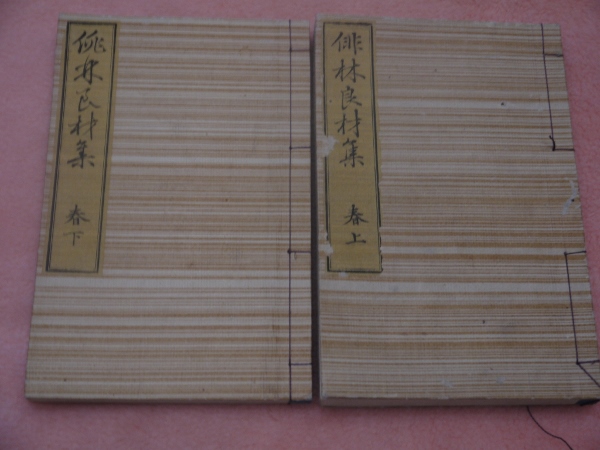 俳林良材集
春上
俳林良材集
春下